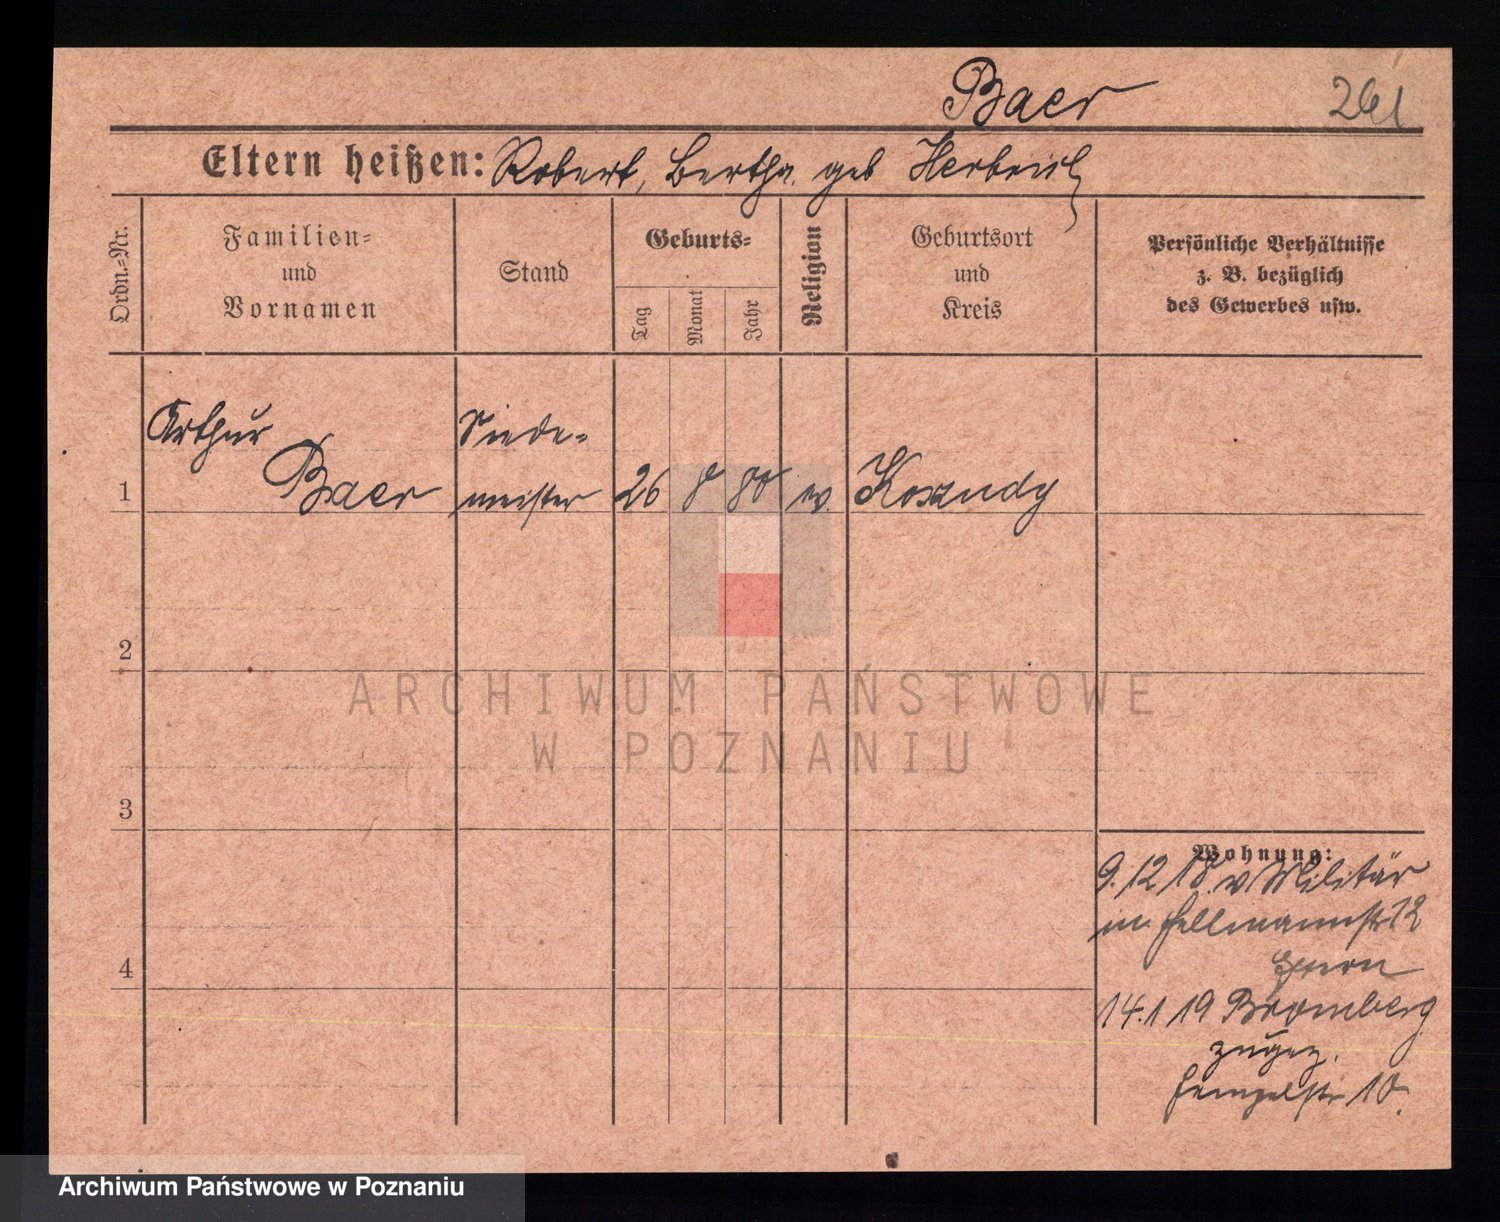 Baer 261
Eltern heißen: Robert, Bertha geb Herbrich
Ordn.=Nr.
Familien=
und
Vornamen
Stand
Geburts=
Tag
Monat
Jahr
Religion
Geburtsort
und
Kreis
Persönliche Verhältnisse
z. B. bezüglich
des Gewerbes usw.
Arthur Siede-
1 Baer meister 26 8 80 ev. Koszudy
2
3
4
Wohnung:
9.12 18. v Militär
in
Eltern
14.1 19 Bromberg
zugez.
10.
ARCHIWUM PAŃSTWOWE
W POZNANIU
Archiwum Państwowe w Poznaniu